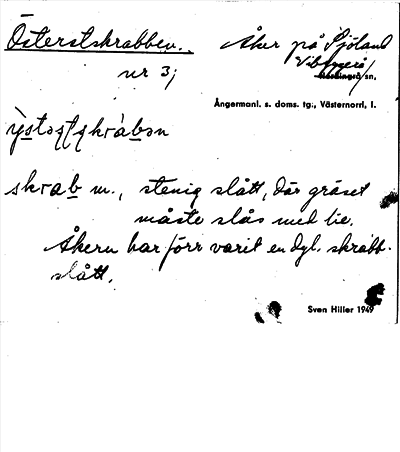 Österstskrabben.. Åker på Sjöland
nr 3; Vibyggerå/sn.
Ångermanl. s. doms. tg., Västernorrl, l.
skrab m., stenig slått, där gräset
måste slås med lie.
Åkern har förr varit en dyl. skrabb-
slått.
Sven Hiller 1949